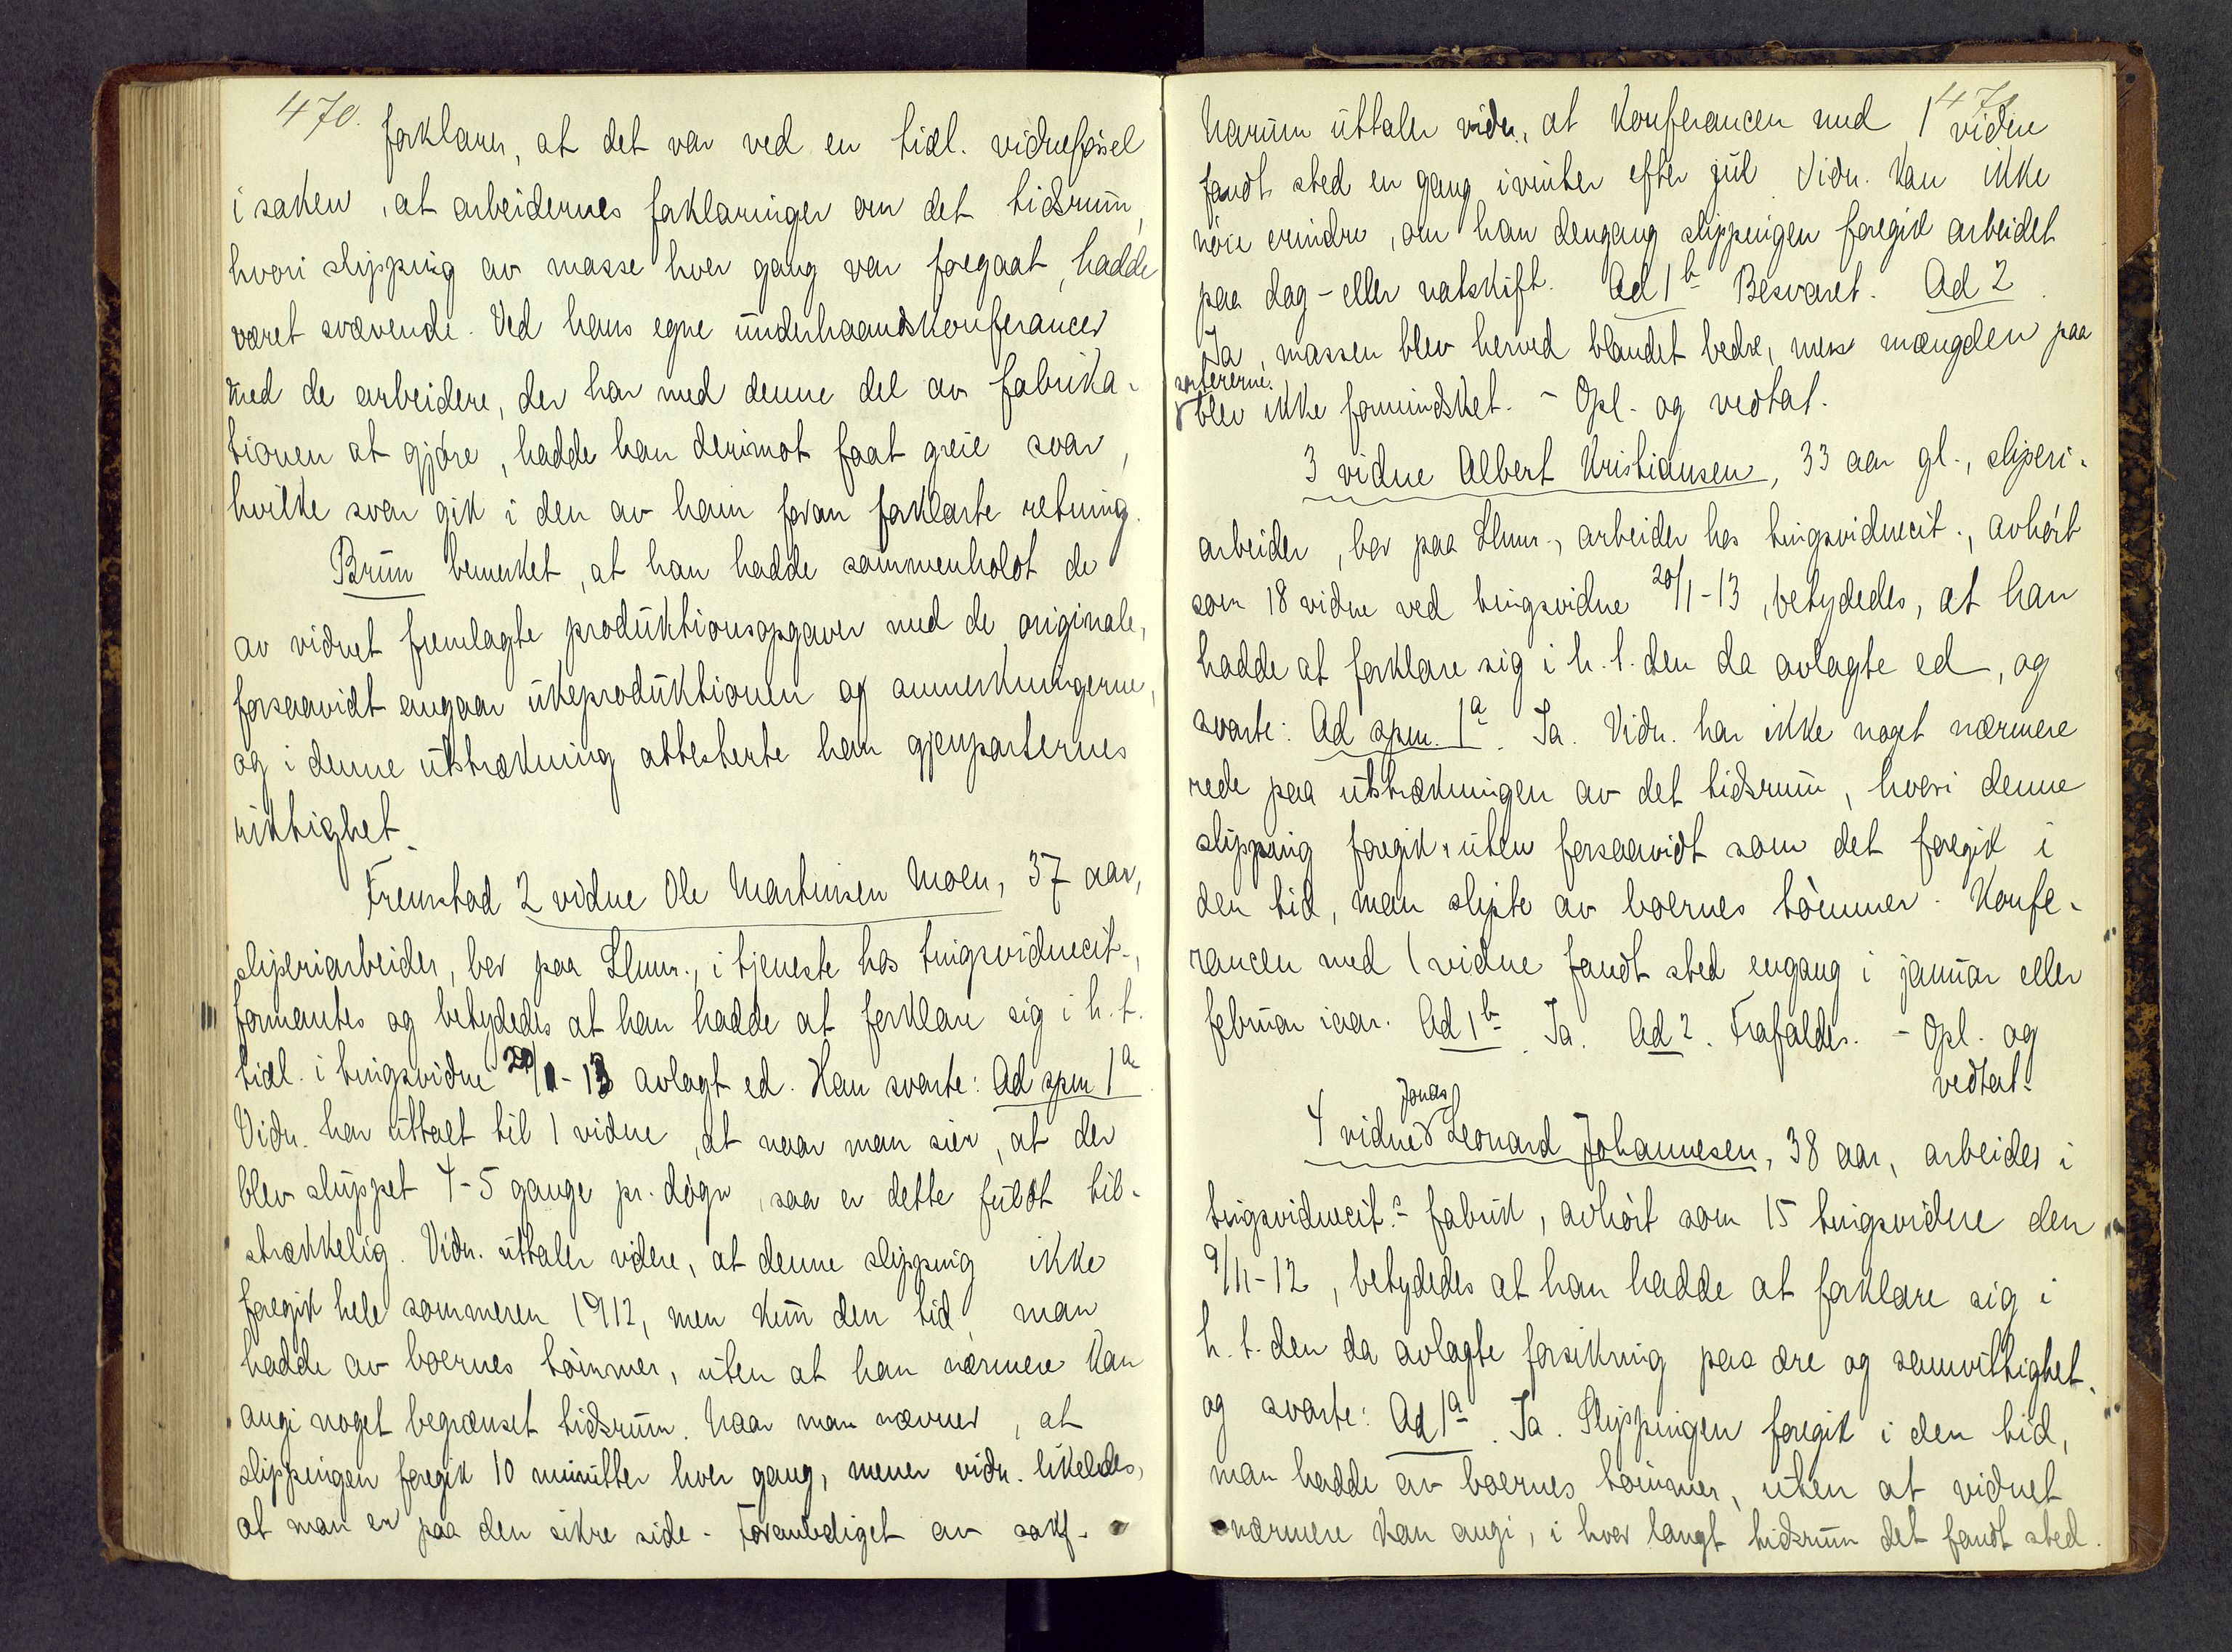 470.
forklarer, at det var ved en tidl. vidneførsel
i saken, at arbeidernes forklaringer om det tidsrum,
hvori slipping av masse hver gang var foregaat, hadde
været svævende. Ved hans egne underhaandskonferancer
med de arbeidere, der har med denne del av fabrika-
tionen at gjøre, hadde han derimot faat greie svar,
hvilke svar gik i den av ham foran forklarte retning.
Bruun bemerket, at han hadde sammenholdt de
av vidnet fremlagte produktionsopgaver med de originale,
forsaavidt angaar ukeproduktionen og anmerkningerne,
og i denne utstrækning attesterte han gjenparternes
riktighet.
Fremstod 2 vidne Ole Martinsen Moen, 37 aar,
sliperiarbeider, bor paa Lhmr., i tjeneste hos tingsvidnecit.,
formantes og betydedes at han hadde at forklare sig i h. t.
tidl. i tingsvidne 20/1-13 avlagt ed. Han svarte: Ad spm 1a
Vidn. har uttalt til 1 vidne, at naar man sier, at der
blev sluppet 4-5 gange pr. døgn, saa er dette fuldt til-
strækkelig. Vidn. uttaler videre, at denne slipping ikke
foregik hele sommeren 1912, men kun den tid, man
hadde av boernes tømmer, uten at han nærmere kan
angi noget begrænset tidsrum. Naar man nævner, at
slippingen foregik 10 minutter hver gang, mener vidn. likeledes,
at man er paa den sikre side. Foranlediget av sakf.
471
Harum uttaler vidn., at konferancen med 1 vidne
fandt sted en gang ivinter efter jul. Vidn. kan ikke
nøie erindre, om han dengang slippingen foregik arbeidet
paa dag- eller natskift. Ad 1b Besvaret. Ad 2.
Ja, massen blev herved blandet bedre, mens mængden paa
sortererne
blev ikke formindsket. - Opl. og vedtat.
3 vidne Albert Kristiansen, 33 aar gl., sliperi-
arbeider, bor paa Lhmr., arbeider hos tingsvidnecit., avhørt
som 18 vidne ved tingsvidne 20/1-13, betydedes, at han
hadde at forklare sig i h. t. den da avlagte ed, og
svarte: Ad spm. 1a. Ja. Vidn. har ikke noget nærmere
rede paa utstrækningen av det tidsrum, hvori denne
slipping foregik, uten forsaavidt som det foregik i
den tid, man slipte av boernes tømmer. Konfe-
rancen med 1 vidne fandt sted engang i januar eller
februar iaar. Ad 1b. Ja. Ad 2. Frafaldes. - Opl. og
vedtat.
Jonas
4 vidne Leonard Johannesen, 38 aar, arbeider i
tingsvidnecit.s fabrik, avhørt som 15 tingsvidne den
9/11-12, betydedes at han hadde at forklare sig i
h. t. den da avlagte forsikring paa ære og samvittighet,
og svarte: Ad 1a. Ja. Slippingen foregik i den tid,
man hadde av boernes tømmer, uten at vidnet
nærmere kan angi, i hvor langt tidsrum det fandt sted.